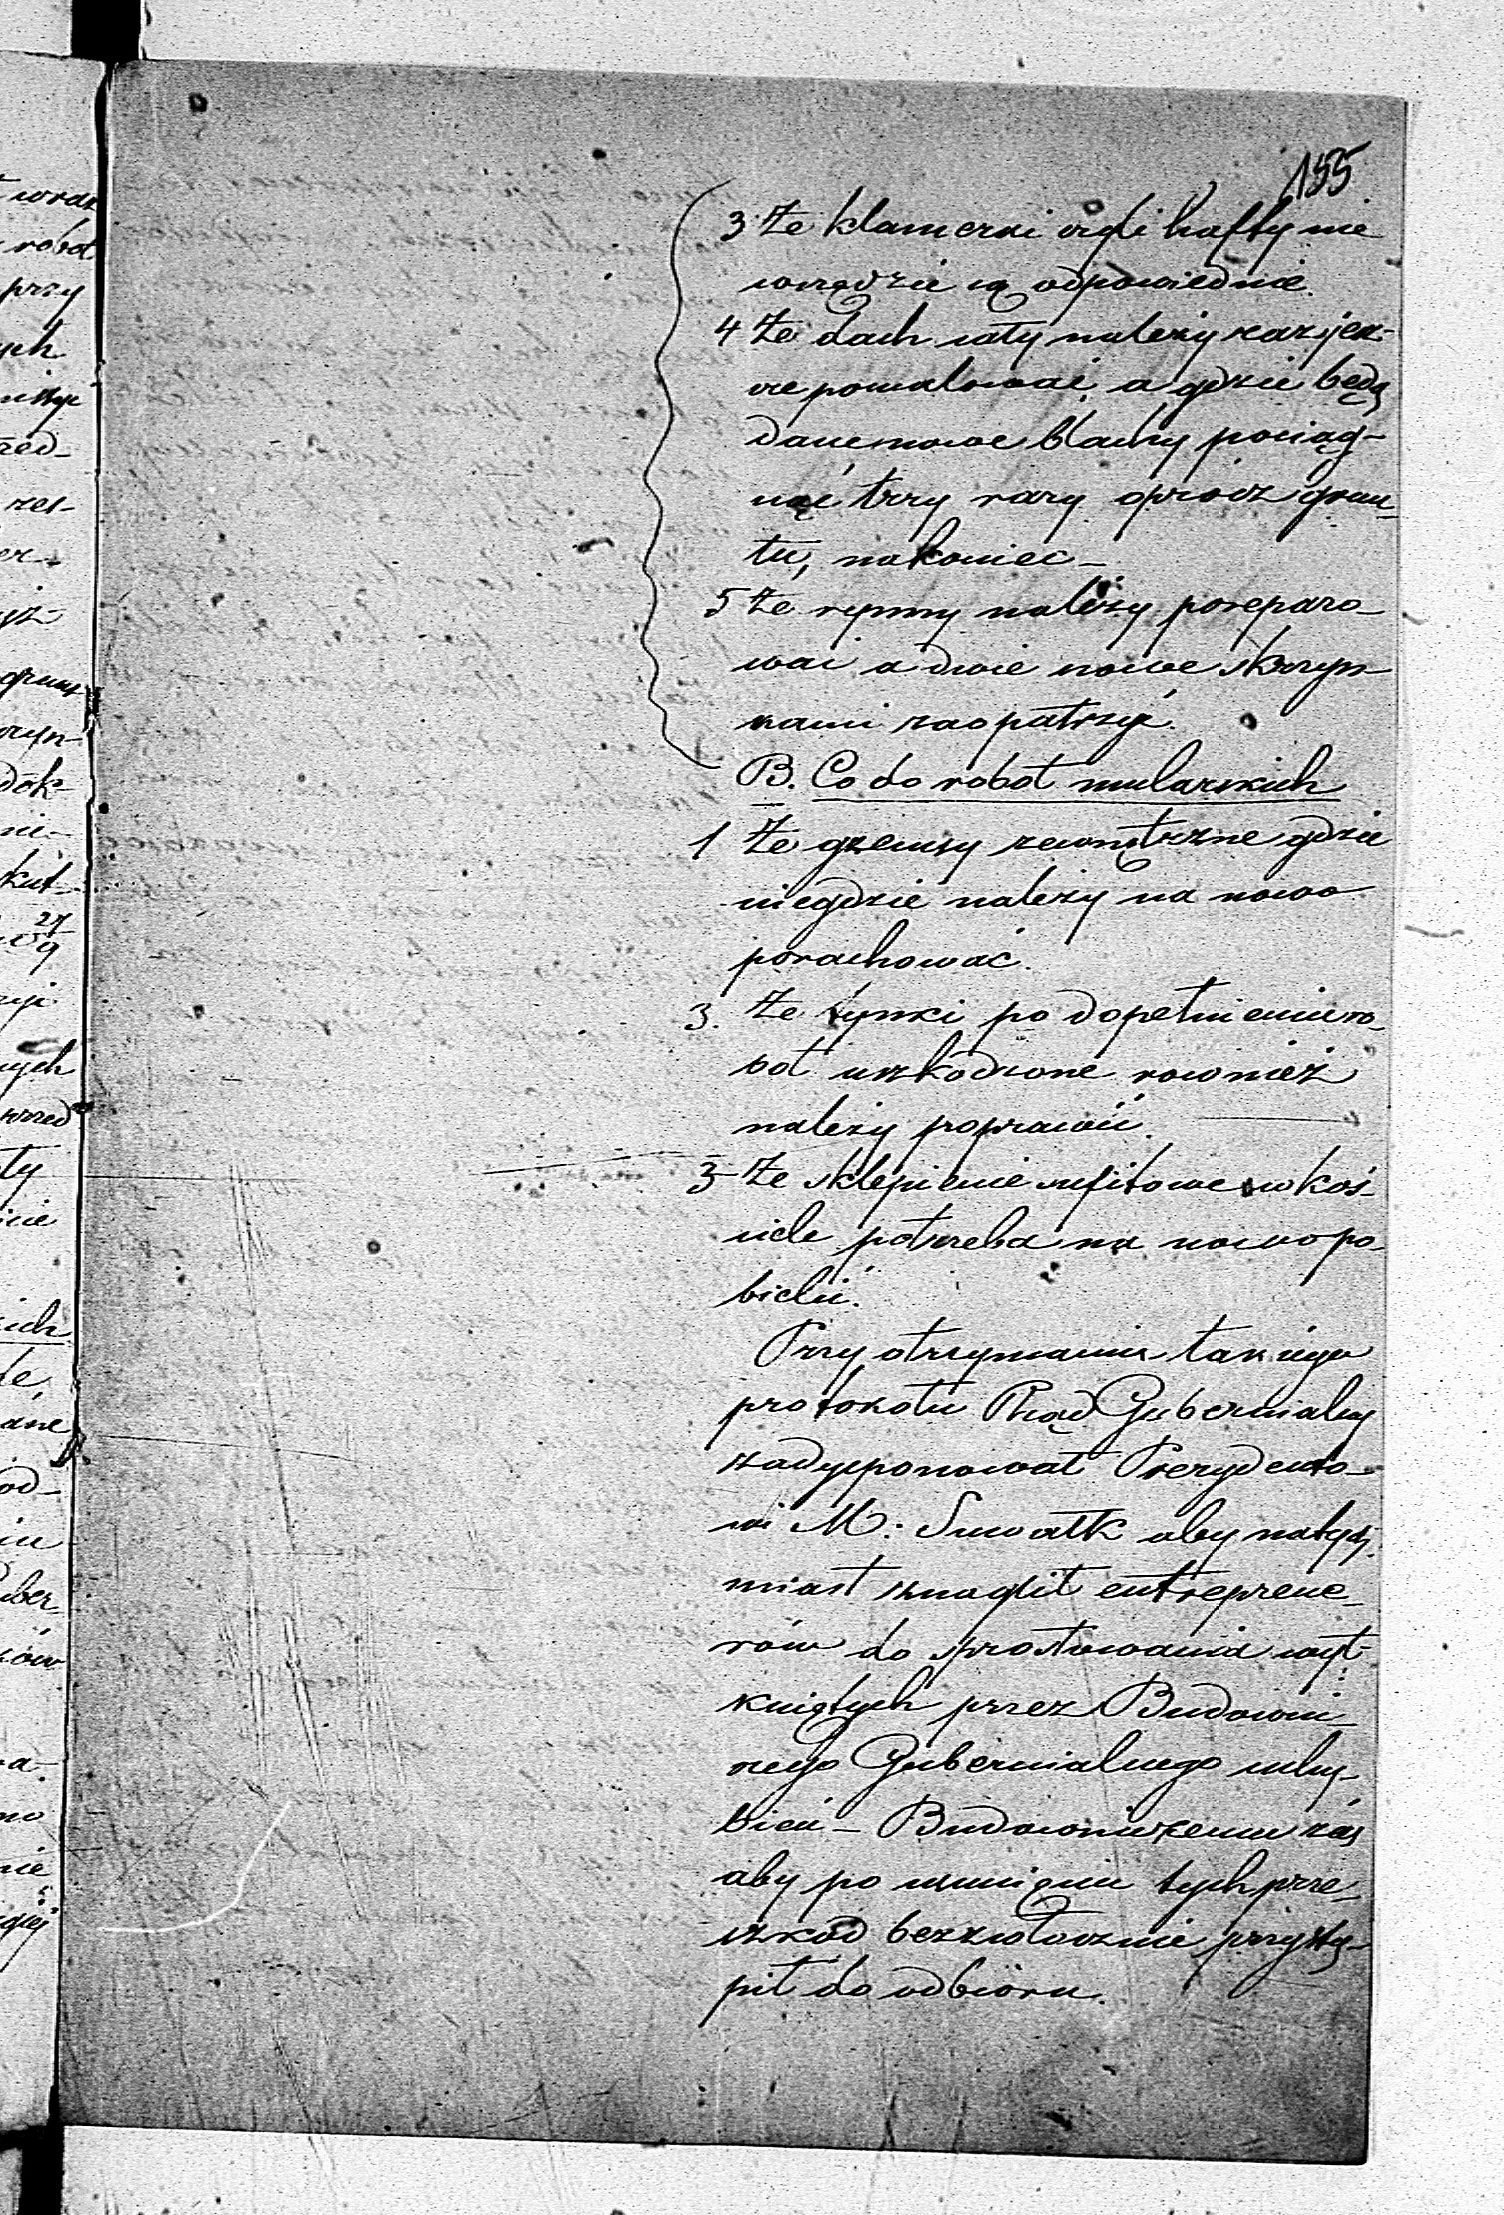 155
3 Że klamerki czyli hafty nie
wszędzie są odpowiednie.
4 Że dach cały należy raz jesz-
cze pomalować, a gdzie będą
dane nowe blachy pociąg-
nąć trzy razy oprócz grun-
tu, nakoniec –
5 Że rynny należy porepero-
wać a dwie nowe skrzyn-
kami zaopatrzyć.
B. Co do robot mularskich
1 Że gzemsy zewnętrzne gdzie
niegdzie należy na nowo
porachować.
3. Że tynki po dopełnieniu ro-
bot uszkodzone rownież
należy poprawić.
3 Że sklepienie sufitowe w koś-
ciele potrzeba na nowo po-
bielić.
Przy otrzymaniu takiego
protokołu Rząd Gubernialny
zadysponował Prezydento-
wi M: Suwałk aby natych-
miast znaglił entreprene-
rów do sprostowania wyt-
kniętych przez Budowni-
czego Gubernialnego uchy-
bień – Budowniczemu zaś
aby po usunięciu tych prze-
szkód bezzwłocznie przystą-
pił do odbioru.